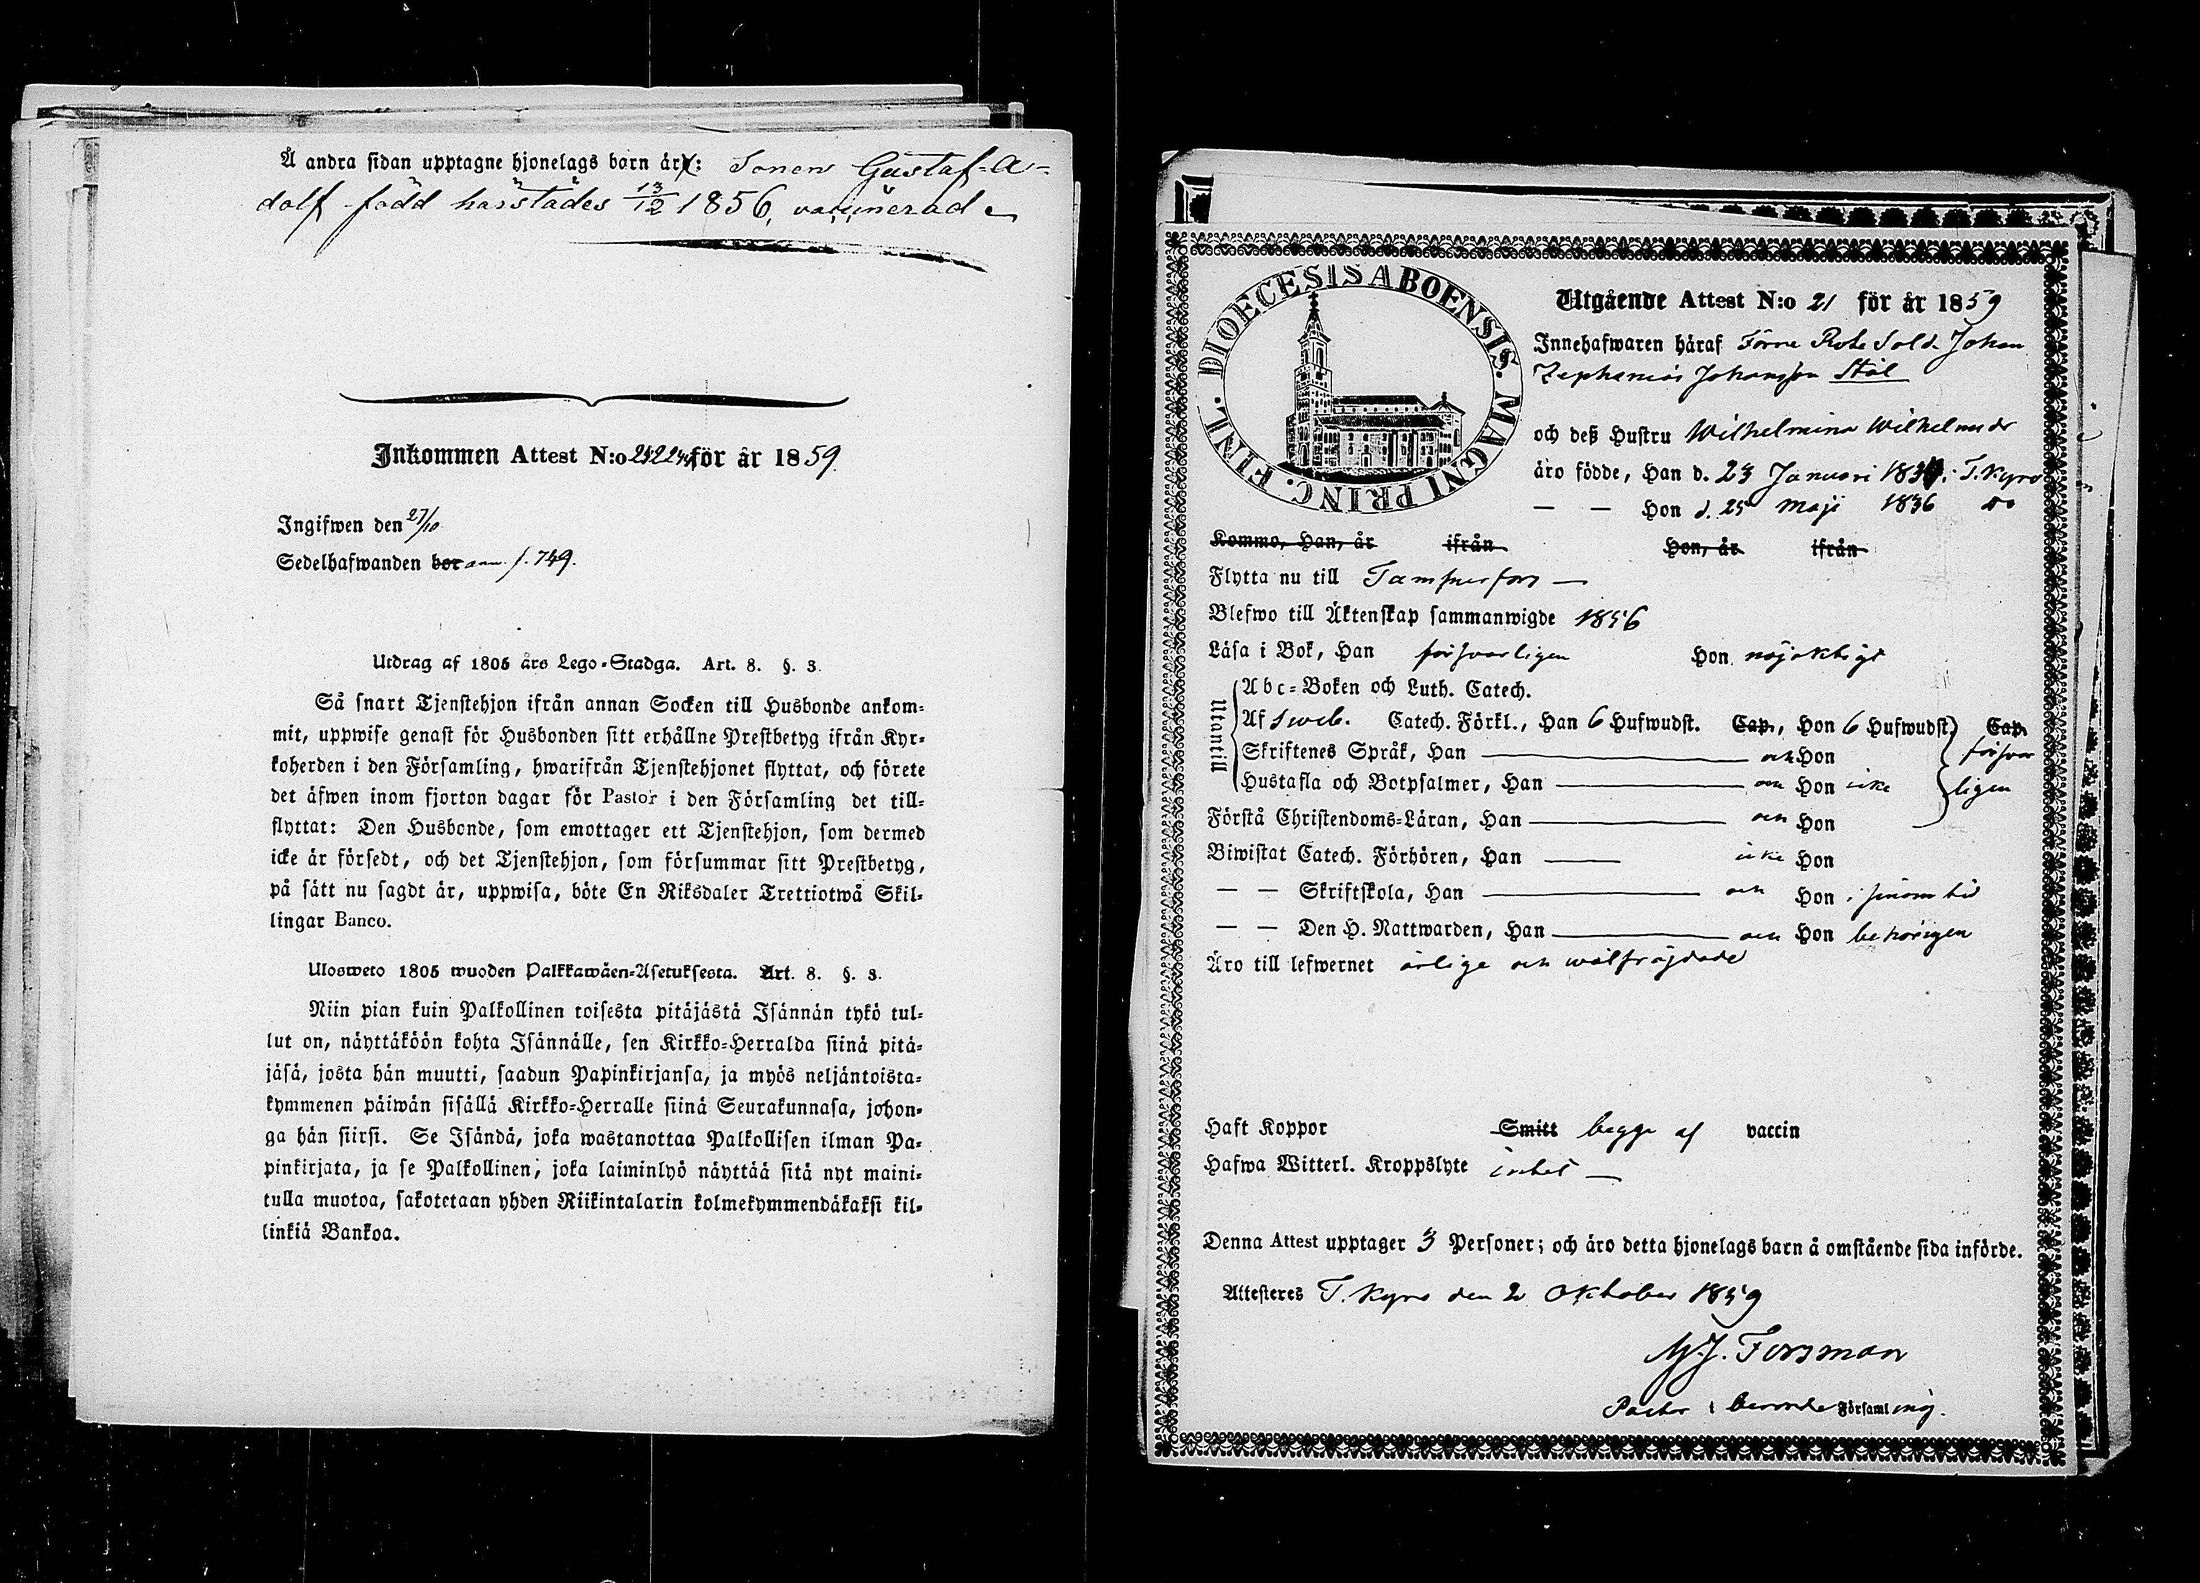 Å andra sidan upptagne hjonelags barn är: Sonen Gustaf-A-
dolf född härstädes 13/12 1856, vaccinerad
Inkommen Attest N:o för år 1859.
Ingifwen den 27/10
Sedelhafwanden bor ann. f. 749.
Utdrag af 1805 års Lego-Stadga. Art. 8. §. 3.
Så snart Tjenstehjon ifrån annan Socken till Husbonde ankom-
mit, uppwise genast för Husbonden sitt erhållne Prestbetyg ifrån Kyr-
koherden i den Församling, hwarifrån Tjenstehjonet flyttat, och förete
det äfwen inom fjorton dagar för Pastor i den Församling det till-
flyttat: Den Husbonde, som emottager ett Tjenstehjon, som dermed
icke är försedt, och det Tjenstehjon, som försummar sitt Prestbetyg,
på sätt nu sagdt är, uppwisa, böte En Riksdaler Trettiotwå Skil-
lingar Banco.
Ulosweto 1805 wuoden Palkkawäen-Asetuksesta. Art. 8. §. 3.
Niin pian kuin Palkollinen toisesta pitäjästä Isännän tykö tul-
lut on, näyttäköön kohta Isännälle, sen Kirkko-Herralda siinä pitä-
jäsä, josta hän muutti, saadun Papinkirjansa, ja myös neljäntoista-
kymmenen päiwän sisällä Kirkko-Herralle siinä Seurakunnasa, johon-
ga hän siirsi. Se Isändä, joka wastanottaa Palkollisen ilman Pa-
pinkirjata, ja se Palkollinen, joka laiminlyö näyttää sitä nyt maini-
tulla muotoa, sakotetaan yhden Riikintalarin kolmekymmendäkaksi kil-
linkiä Bankoa.
DIOECESIS ABOENSIS. MAGNI PRINC. FINL.
Utgående Attest N:o 21 för år 1859
Innehafwaren häraf Förre Rote Sold. Johan
Zephanias Johansson Stål
och deß Hustru Wilhelmina Wilhelmsdr
äro födde, Han d. 23 Januari T. Kyro
— — Hon d. 25 Maji 1836 do
Kommo, Han, år ifrån Hon, år ifrån
Flytta nu till Tammerfors —
Blefwo till Äktenskap sammanwigde 1856
Läsa i Bok, Han försvarligen Hon nöjaktigt
Utantill
Abc-Boken och Luth. Catech.
Af Sveb. Catech. Förkl., Han 6 Hufwudst. Cap., Hon 6 Hufwudst. Cap.
Skriftenes Språk, Han — och Hon försvar
Hustafla och Botpsalmer, Han — och Hon icke ligen
Förstå Christendoms-Läran, Han — och Hon
Biwistat Catech. Förhören, Han — icke Hon
— — Skriftskola, Han — och Hon i sinom tid
— — Den H. Nattwarden, Han — och Hon behörigen
Äro till lefwernet ärlige och wälfräjdade
Haft Koppor Smitt begge af vaccin
Hafwa Witterl. Kroppslyte intet —
Denna Attest upptager 3 Personer; och äro detta hjonelags barn å omstående sida införde.
Attesteres T. Kyro den 2 Oktober 1859
M. J. Forsman
Pastor i berörde Församling.